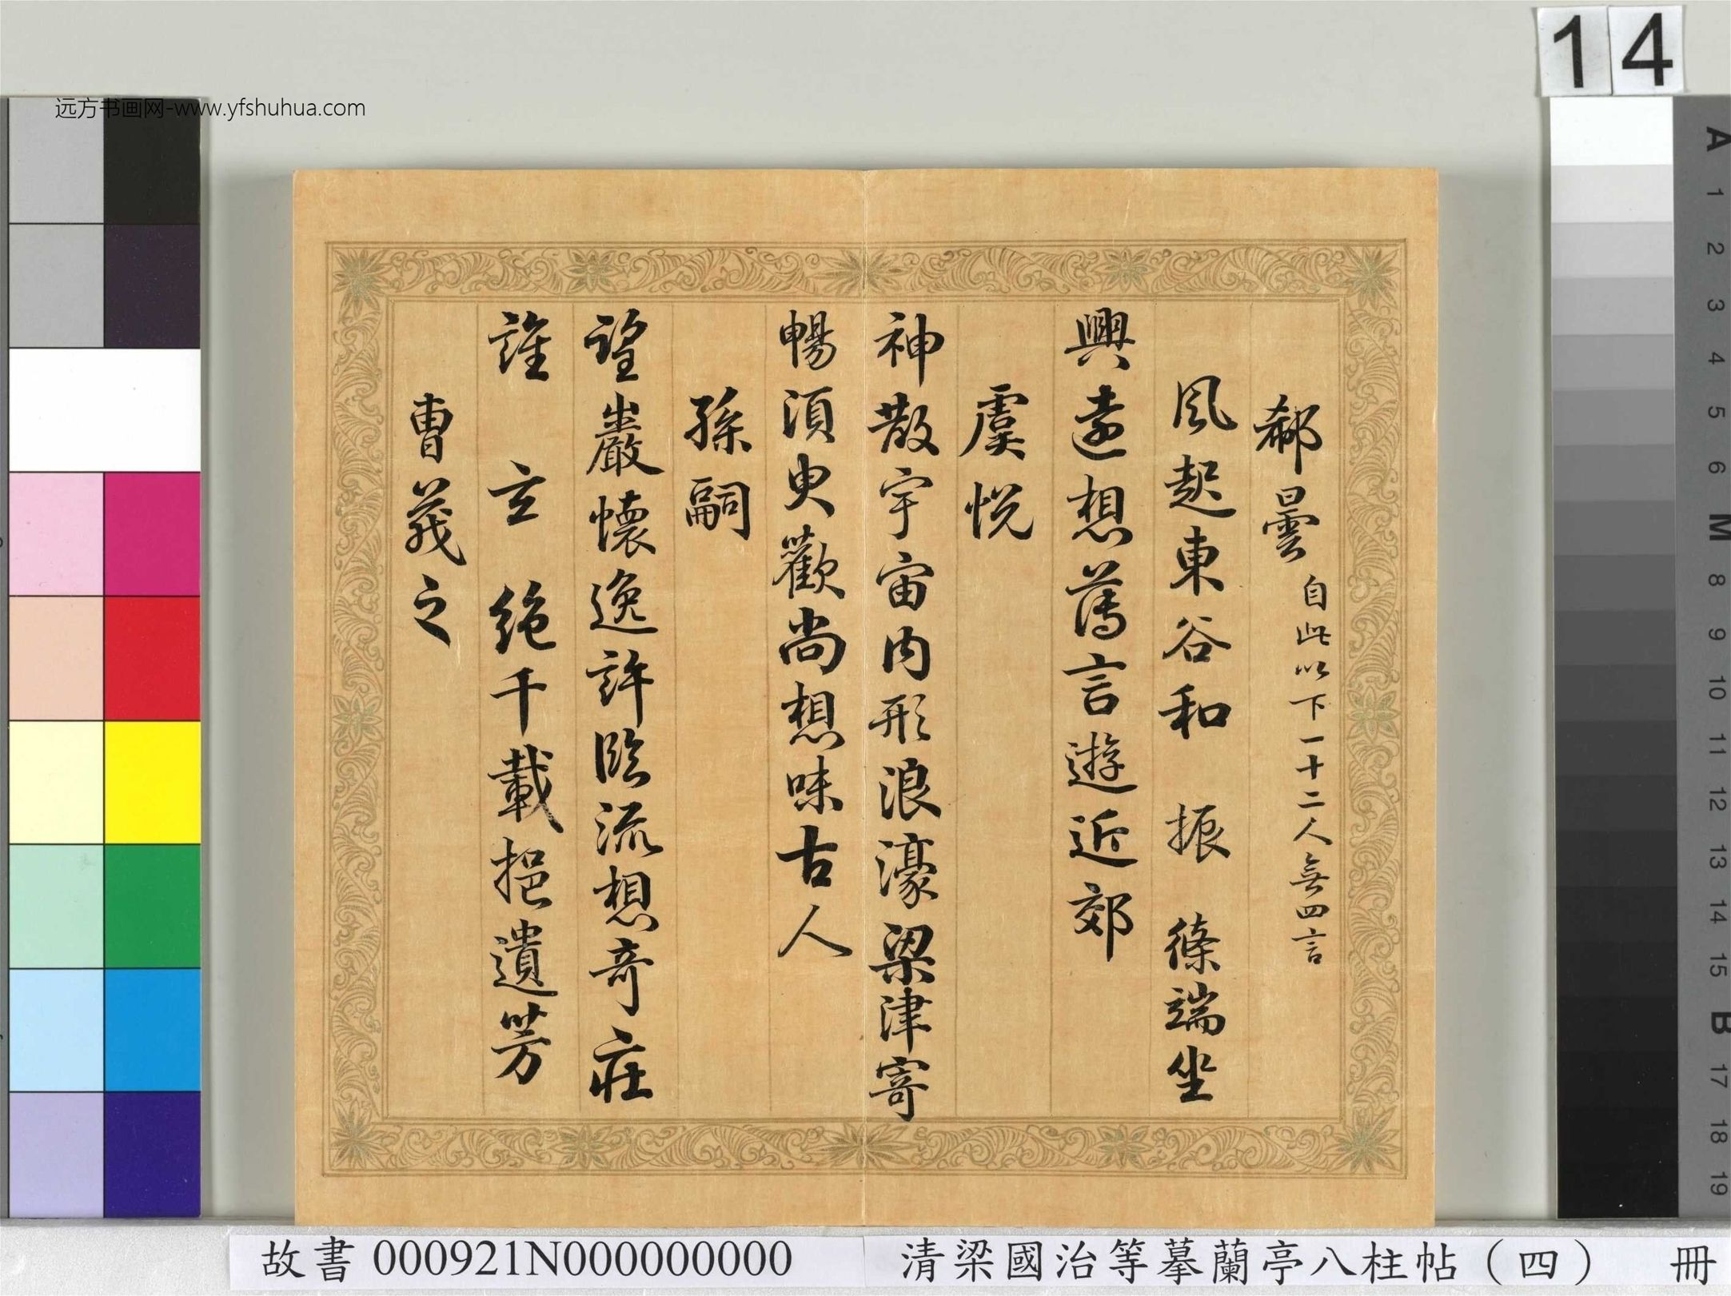 14
远方书画网-www.yfshuhua.com
郗曇 自此以下一十二人無四言
風起東谷和 振 條端坐
興遠想薄言遊近郊
虞悅
神散宇宙內形浪濠梁津寄
暢須臾歡尚想味古人
孫嗣
望巖懷逸許臨流想奇莊
誰 云 絕千載挹遺芳
曹茂之
A 1 2 3 4 5 6 M 8 9 10 11 12 13 14 15 B 17 18 19
故書 000921N000000000
清梁國治等摹蘭亭八柱帖（四） 冊